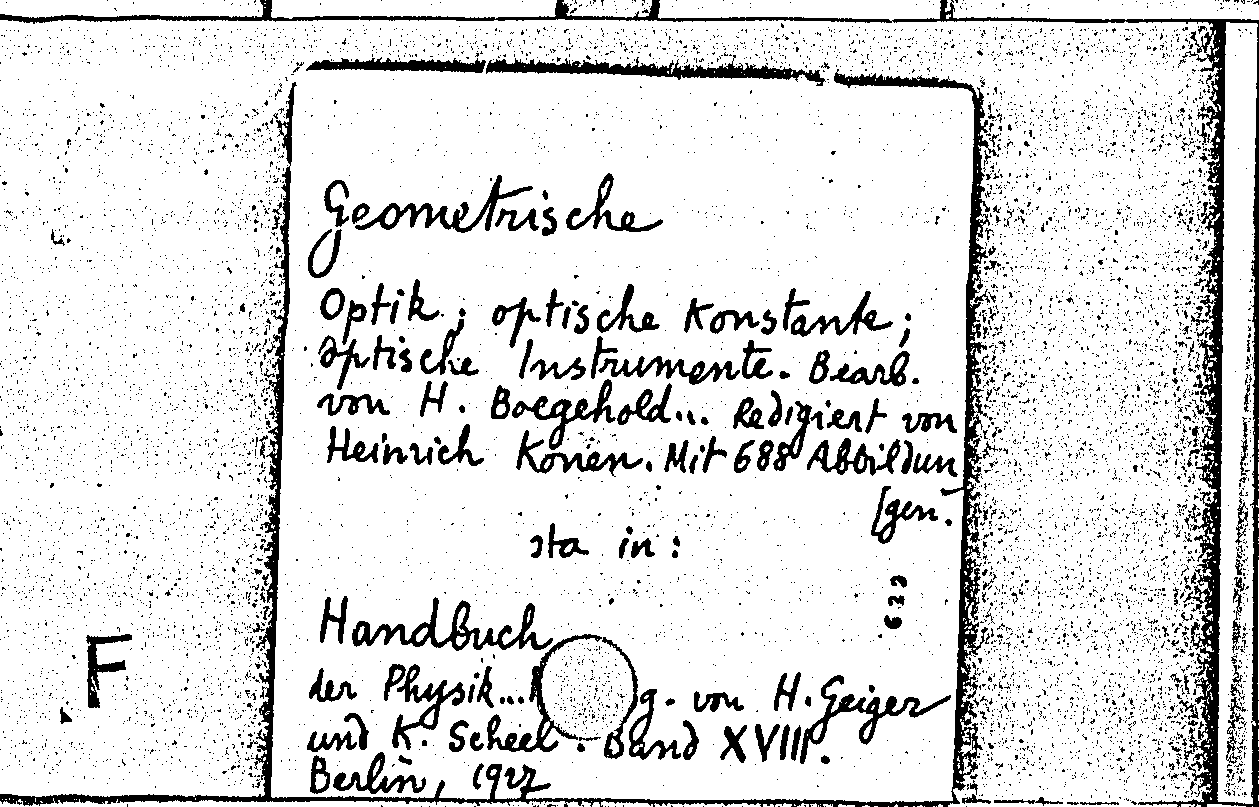 Geometrische
Optik; optische Konstante;
optische Instrumente. Bearb.
von H. Boegehold... Redigiert von
Heinrich Konen. Mit 688 Abbildun
[gen.
sta in:
623
Handbuch
der Physik... g. von H. Geiger
und K. Scheel. Band XVIII.
Berlin, 1927
F